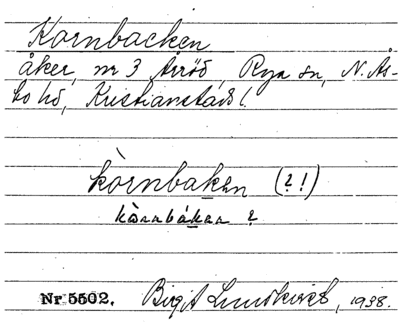 Kornbacken
åker, nr 3 Arröd, Rya sn, N. Ås-
bo hd, Kristianstads l.
kòrnbakən (?!)
kòrnbákan ?
Nr 5502. Birgit Lundkvist, 1938.